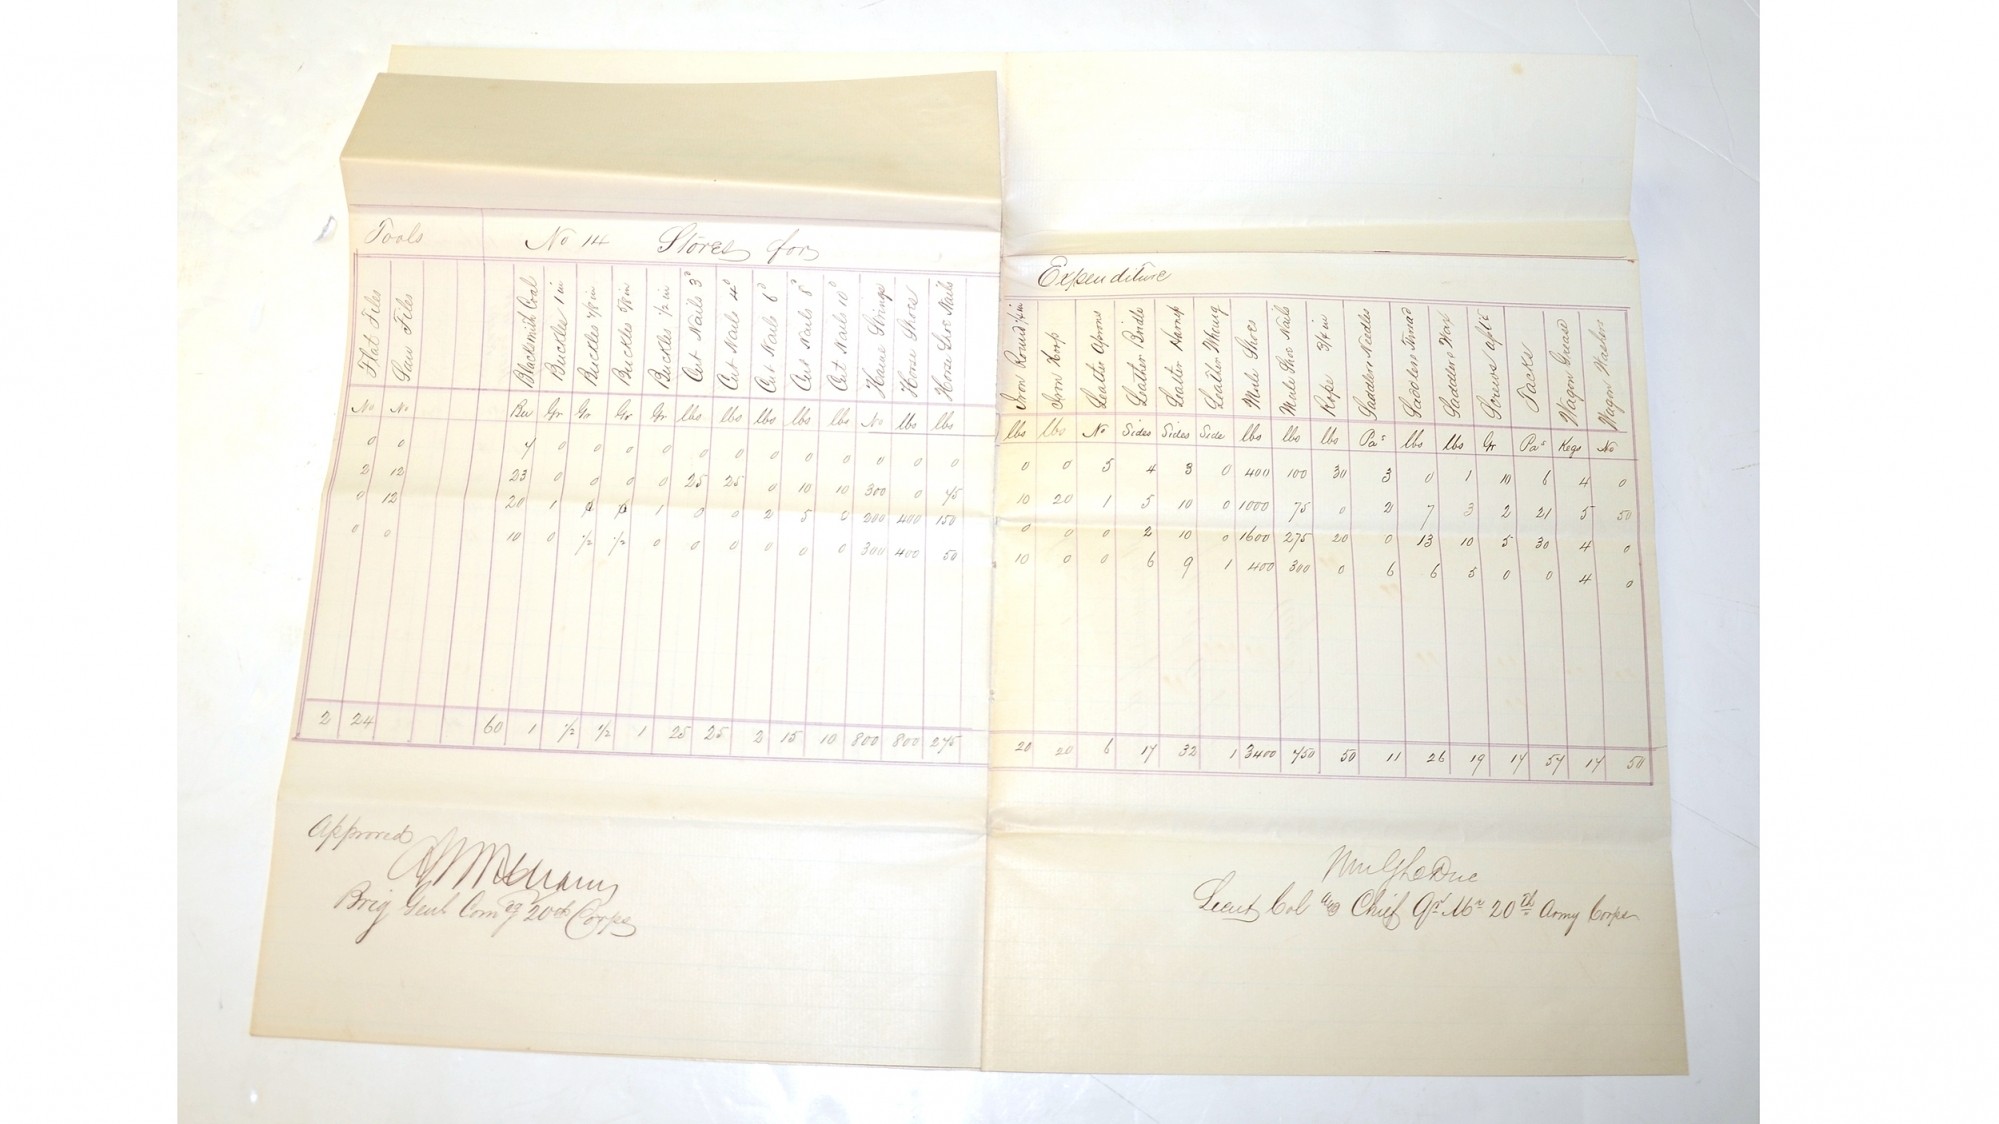 Tools No 14 Stores for
Flat Files Saw Files Blacksmith Coal Buckles 1 in Buckles 7/8 in Buckles 5/8 in Buckles 1/2 in Cut Nails 3d Cut Nails 4d Cut Nails 6d Cut Nails 8d Cut Nails 10d Hame Strings Horse Shoes Horse Shoe Nails
No No Bu Gr Gr Gr Gr lbs lbs lbs lbs lbs No lbs lbs
0 0 7 0 0 0 0 0 0 0 0 0 0 0 0
2 12 23 0 0 0 0 25 25 0 10 10 300 0 75
0 12 20 1 0 0 1 0 0 2 5 0 200 400 150
0 0 10 0 1/2 1/2 0 0 0 0 0 0 300 400 50
2 24 60 1 1/2 1/2 1 25 25 2 15 10 800 800 275
Approved
Brig Genl Comdg 20th Corps
Expenditure
Iron Round in Iron Leather Aprons Leather Bridle Leather Harness Leather Thong Mule Shoes Mule Shoe Nails Rope 3/4 in Saddlers Needles Saddlers Thread Saddlers Wax Screws Tacks Wagon Grease Wagon Washers
lbs lbs No Sides Sides Side lbs lbs lbs Pas lbs lbs Gr Pas Kegs No
0 0 5 4 3 0 400 100 30 3 0 1 10 6 4 0
10 20 1 5 10 0 1000 75 0 2 7 3 2 21 5 50
0 0 0 2 10 0 1600 275 20 0 13 10 5 30 4 0
10 0 0 6 9 1 400 300 0 6 6 5 0 0 4 0
20 20 6 17 32 1 3400 750 50 11 26 19 17 57 17 50
Wm G Le Duc
Lieut Col and Chief Qr Mr 20th Army Corps